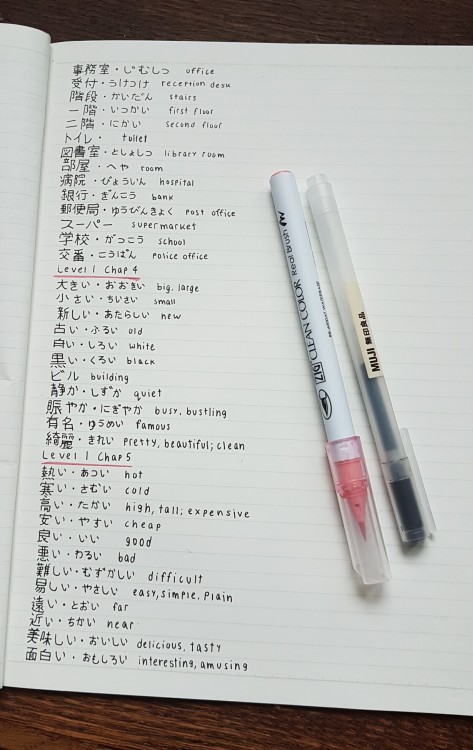 事務室・じむしつ office
受付・うけつけ reception desk
階段・かいだん stairs
一階・いっかい first floor
二階・にかい second floor
トイレ・ toilet
図書室・としょしつ library room
部屋・へや room
病院・びょういん hospital
銀行・ぎんこう bank
郵便局・ゆうびんきょく post office
スーパー supermarket
学校・がっこう school
交番・こうばん police office
Level 1 Chap 4
大きい・おおきい big, large
小さい・ちいさい small
新しい・あたらしい new
古い・ふるい old
白い・しろい white
黒い・くろい black
ビル building
静か・しずか quiet
賑やか・にぎやか busy, bustling
有名・ゆうめい famous
綺麗・きれい pretty, beautiful; clean
Level 1 Chap 5
熱い・あつい hot
寒い・さむい cold
高い・たかい high, tall; expensive
安い・やすい cheap
良い・いい good
悪い・わるい bad
難しい・むずかしい difficult
易しい・やさしい easy, simple, plain
遠い・とおい far
近い・ちかい near
美味しい・おいしい delicious, tasty
面白い・おもしろい interesting, amusing
ZIG CLEAN COLOR Real Brush
MUJI 無印良品